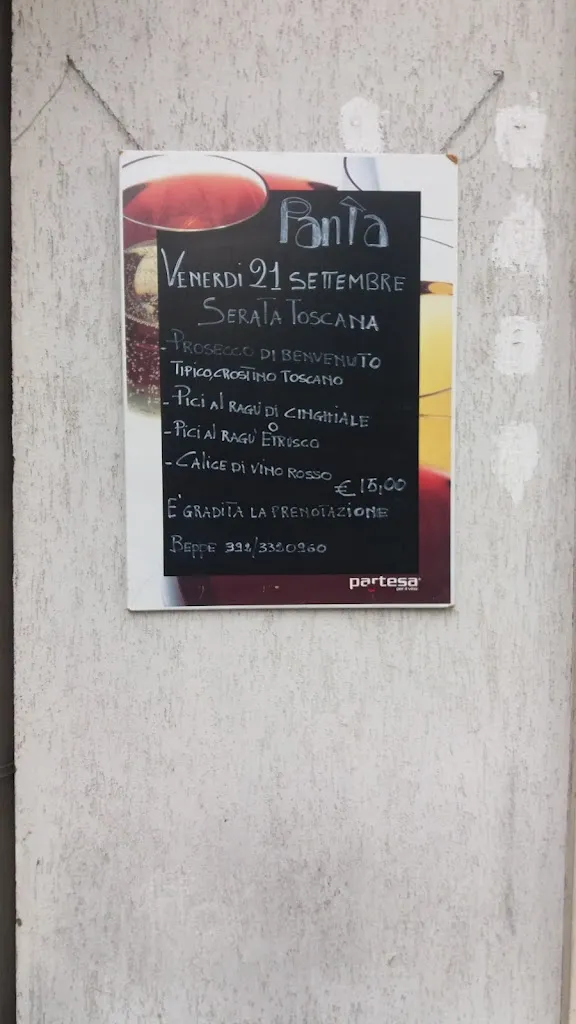 Pantà
VENERDÌ 21 SETTEMBRE
SERATA TOSCANA
-PROSECCO DI BENVENUTO
TIPICO CROSTINO TOSCANO
-PICI AL RAGÙ DI CINGHIALE
O
-PICI AL RAGU' ETRUSCO
-CALICE DI VINO ROSSO
€ 15,00
E' GRADITA LA PRENOTAZIONE
BEPPE 392/3320960
partesa
per il vino